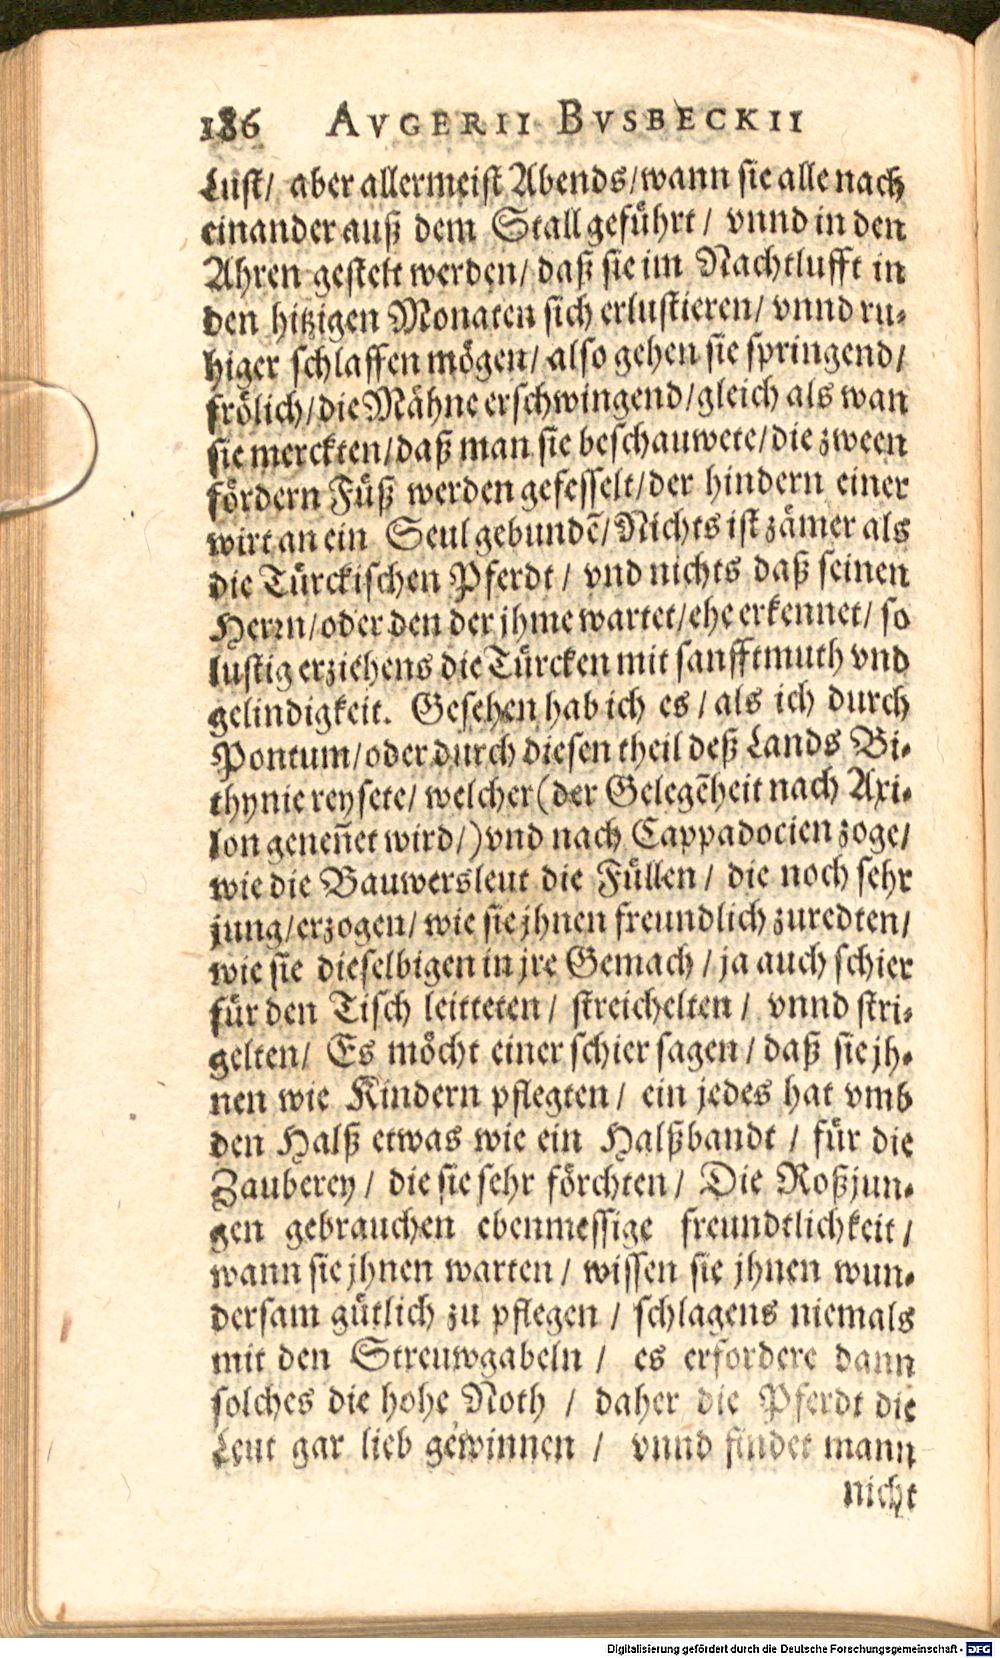 186 AVGERII BVSBECKII
Lust/ aber allermeist Abends/wann sie alle nach
einander auß dem Stall geführt/ vnnd in den
Ahren gestelt werden/ daß sie im Nachtlufft in
den hitzigen Monaten sich erlustieren/ vnnd ru-
higer schlaffen mögen/ also gehen sie springend/
frölich/die Mähne erschwingend/gleich als wan
sie merckten/daß man sie beschauwete/die zween
fördern Füß werden gefesselt/der hindern einer
wirt an ein Seul gebundẽ/Nichts ist zämer als
die Türckischen Pferdt/ vnd nichts daß seinen
Herrn/oder den der jhme wartet/ehe erkennet/ so
lustig erziehens die Türcken mit sanfftmuth vnd
gelindigkeit. Gesehen hab ich es/ als ich durch
Pontum/oder durch diesen theil deß Lands Bi-
thynie reysete/ welcher (der Gelegẽheit nach Axi-
lon geneñet wird/) vnd nach Cappadocien zoge/
wie die Bauwersleut die Füllen/ die noch sehr
jung/erzogen/ wie sie jhnen freundlich zuredten/
wie sie dieselbigen in jre Gemach/ ja auch schier
für den Tisch leitteten/ streichelten/ vnnd stri-
gelten/ Es möcht einer schier sagen/ daß sie jh-
nen wie Kindern pflegten/ ein jedes hat vmb
den Halß etwas wie ein Halßbandt/ für die
Zauberey/ die sie sehr förchten/ Die Roßjun-
gen gebrauchen ebenmessige freundtlichkeit/
wann sie jhnen warten/ wissen sie jhnen wun-
dersam gütlich zu pflegen/ schlagens niemals
mit den Streuwgabeln/ es erfordere dann
solches die hohe Noth/ daher die Pferdt die
Leut gar lieb gewinnen/ vnnd findet mann
nicht
Digitalisierung gefördert durch die Deutsche Forschungsgemeinschaft - DFG